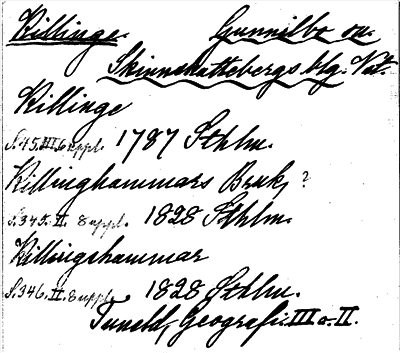 Killinge. Gunnilbo sn.
Skinnskattebergs hg. Vstm.
Killinge
S. 45. III. 6 uppl. 1787 Sthlm.
Killinghammars Bruk, ?
S. 345. II. 8 uppl. 1828 Sthlm.
Killingshammar
S. 346. II. 8 uppl. 1828 Sthlm.
Tuneld, Geografi: III o. II.